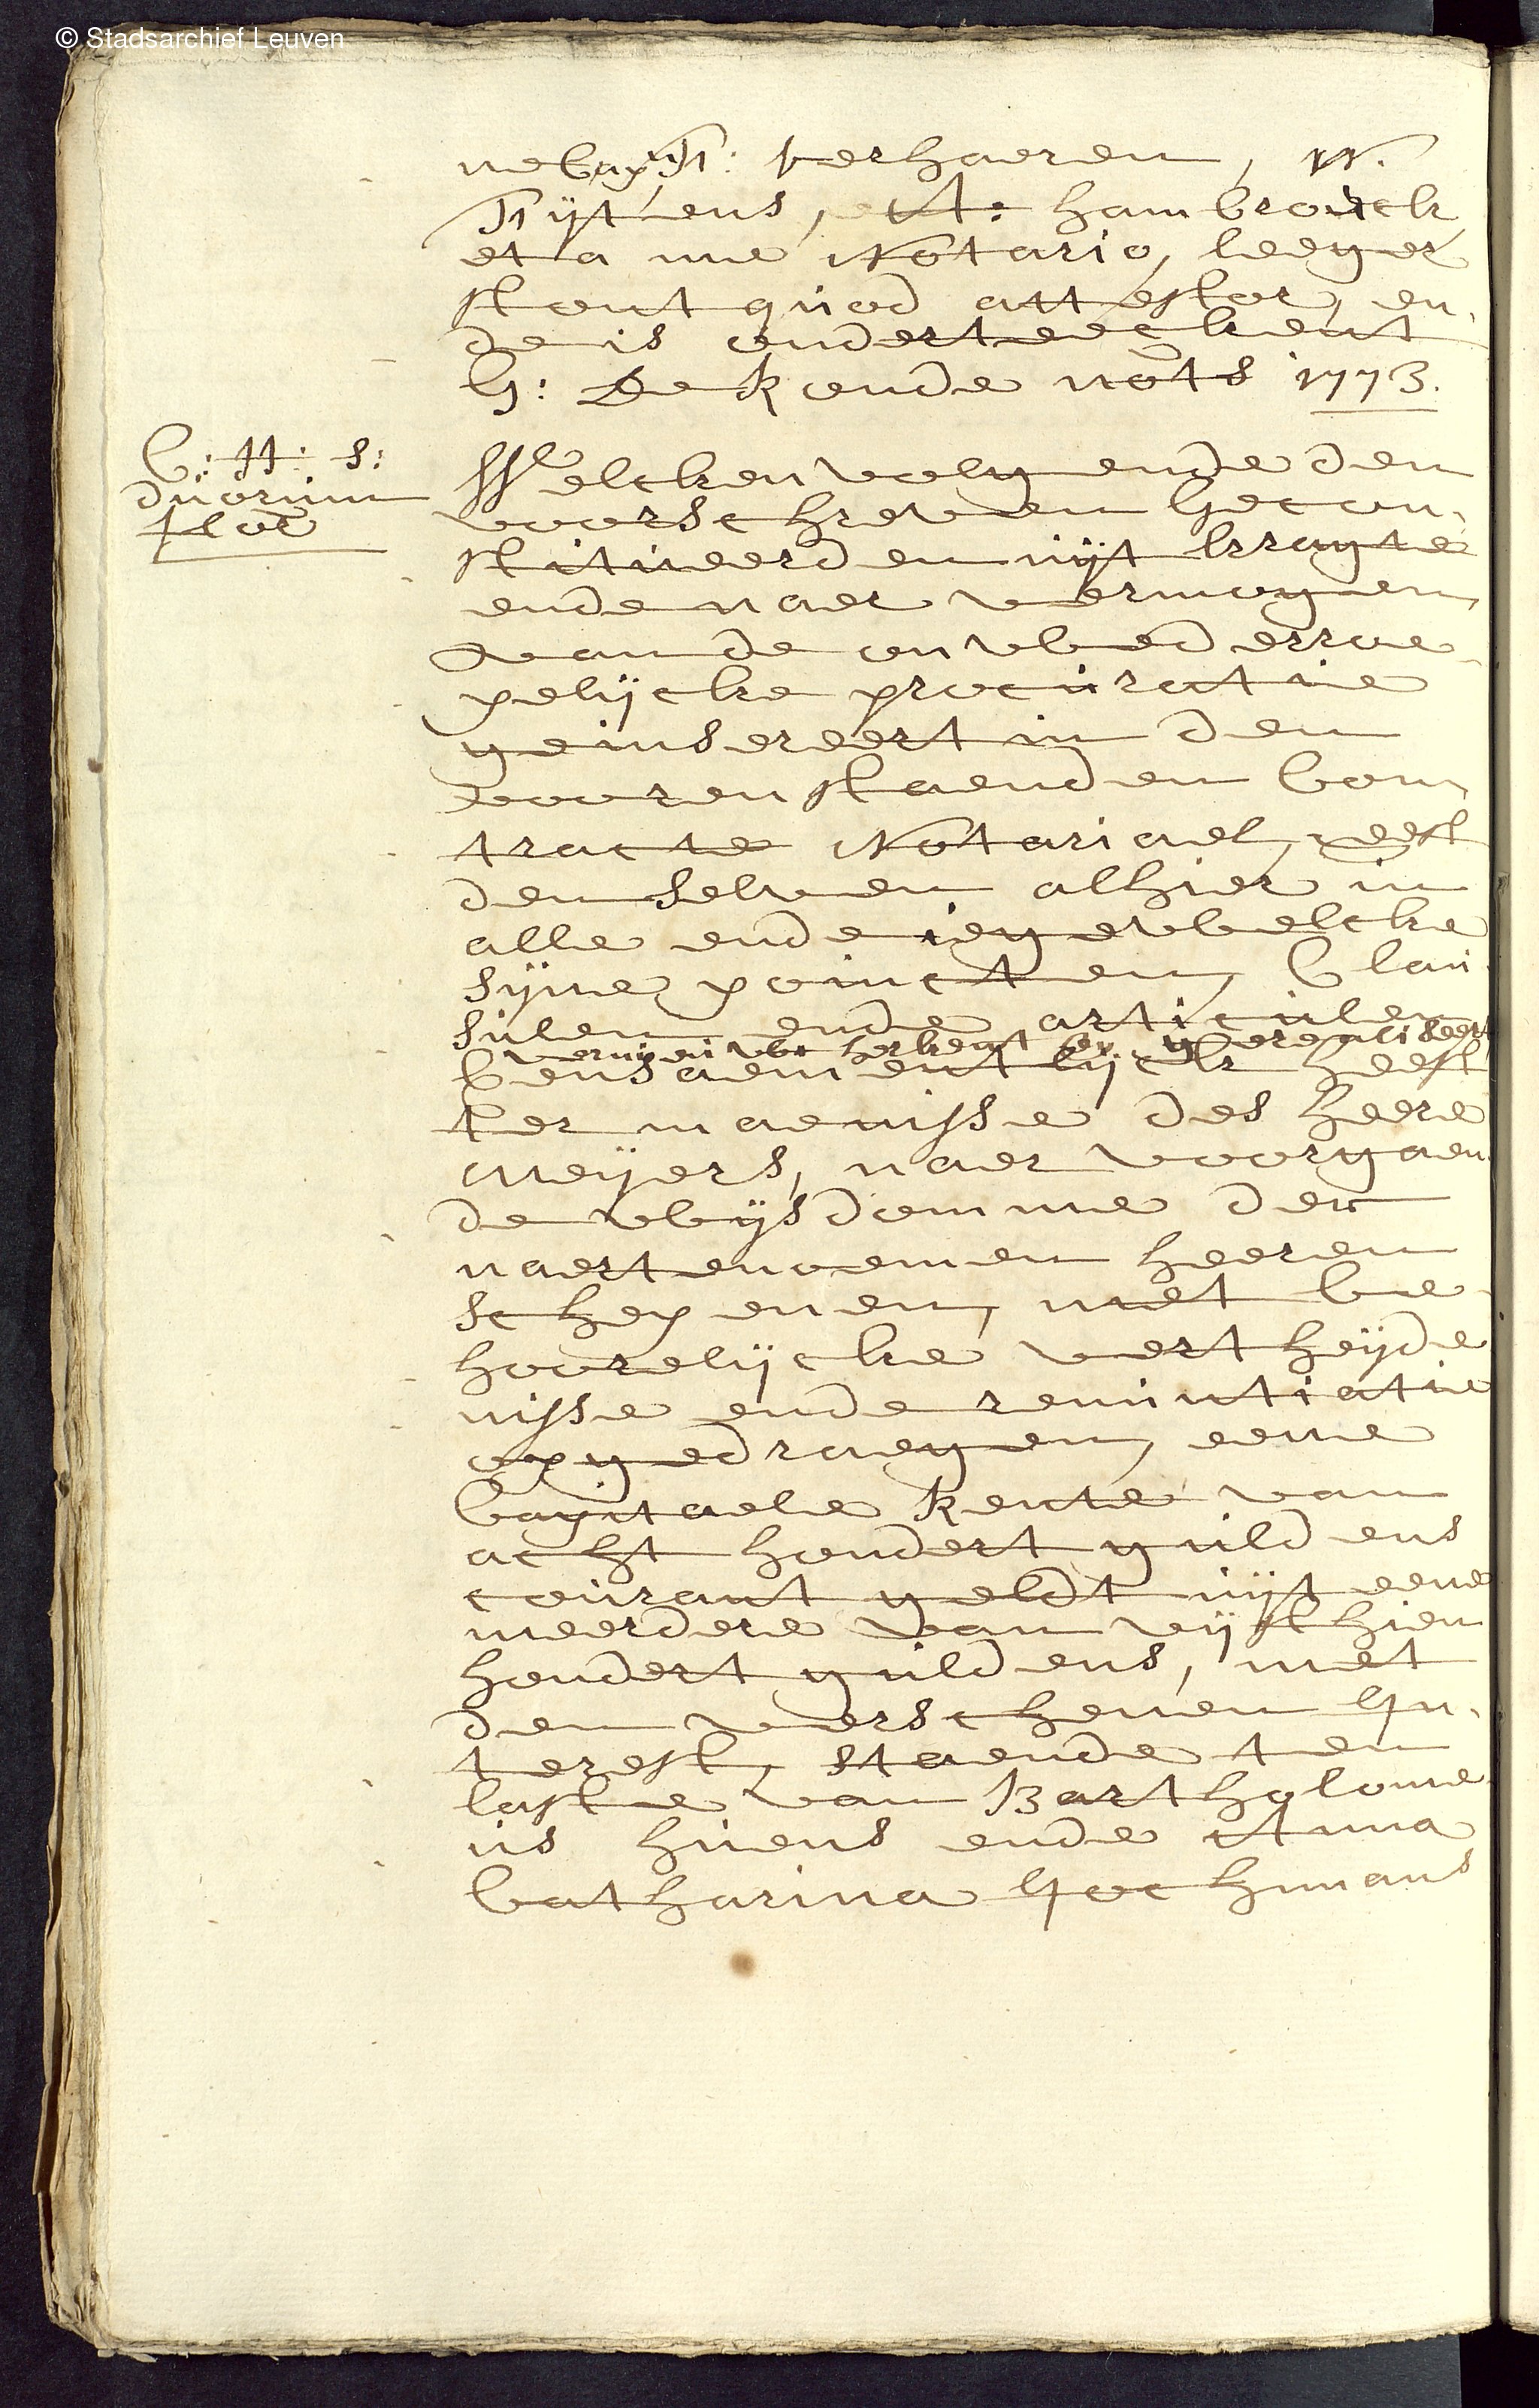 © Stadsarchief Leuven
Verhaeren, W.
Tijtens, A: Hambrouck
et a me Notario, leeger
stont quod attestor, en-
de is onderteeckent
G: De Ronde nots 1773.
C: H: S:
duorum
flor
Welcken volgende den
voorschreven Gecon-
stitueerden uijt kragte
ende naer vermogen
van de onwederroe-
pelijcke procuratie
geinsereert in den
voorenstaenden Con-
tracte Notariael, heeft
denselven alhier in
alle ende iegewelcke
sijne poincten, Clau-
sulen ende articulen
vernieuwt herkent en gerealiseert
Consaementlijck heeft
ter maenisse des heere
Meijers, naer voorgaen-
de wijsdomme der
naertenoemen heeren
schepenen, met be-
hoorelijcke verthijde
nisse ende renuntiatie
opgedraegen, eene
Capitaele Rente van
acht hondert guldens
courant geldt uijt eene
meerdere van vijfthien
hondert guldens, met
den verschenen In-
terest, staende ten
laste van Bartholome
us Huens ende Anna
Catharina Gochmans